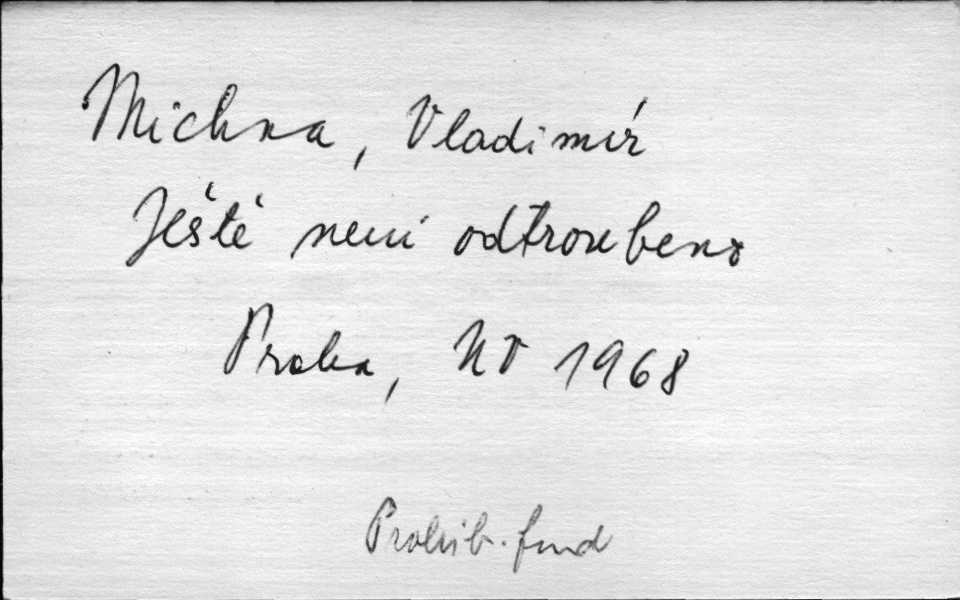 Michna, Vladimír
Ještě není odtroubeno
Praha, NV 1968
Prohib. fond